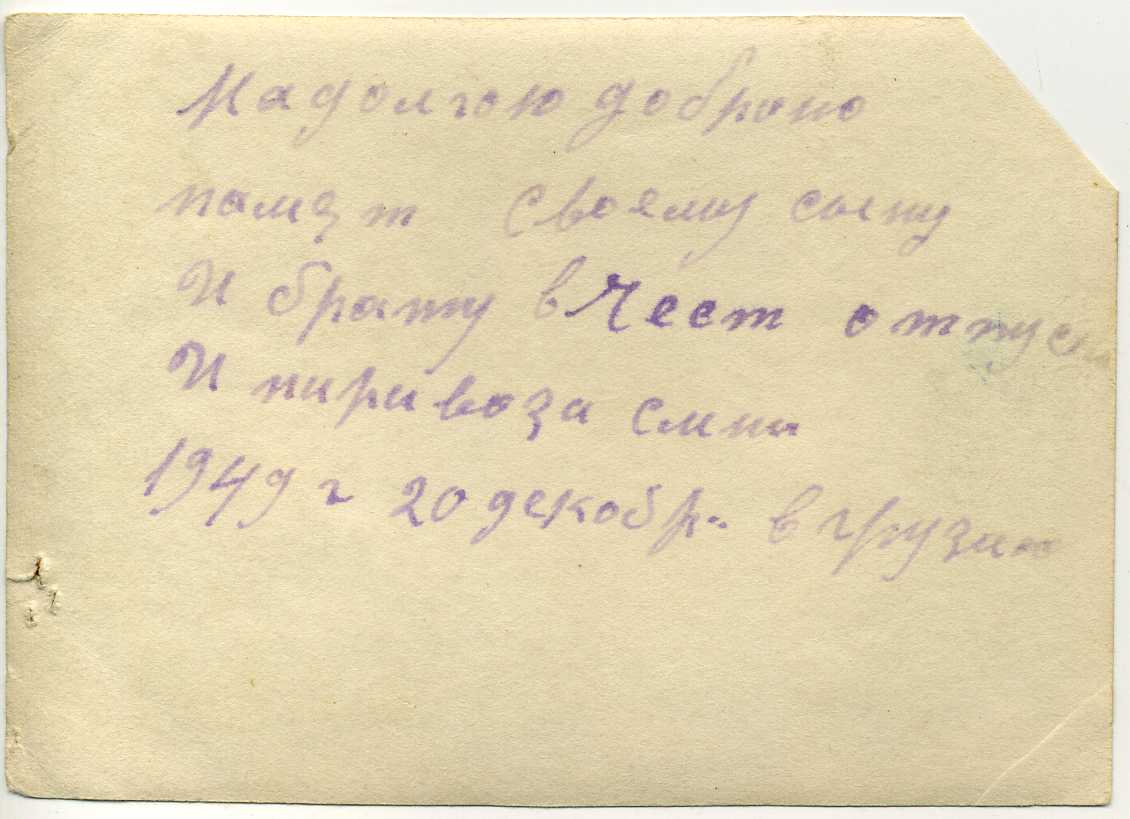 На долгою доброю
памят своему сыну
И брату в Чест отпуска
И пиривоза
1949 г 20 декобр. в грузию